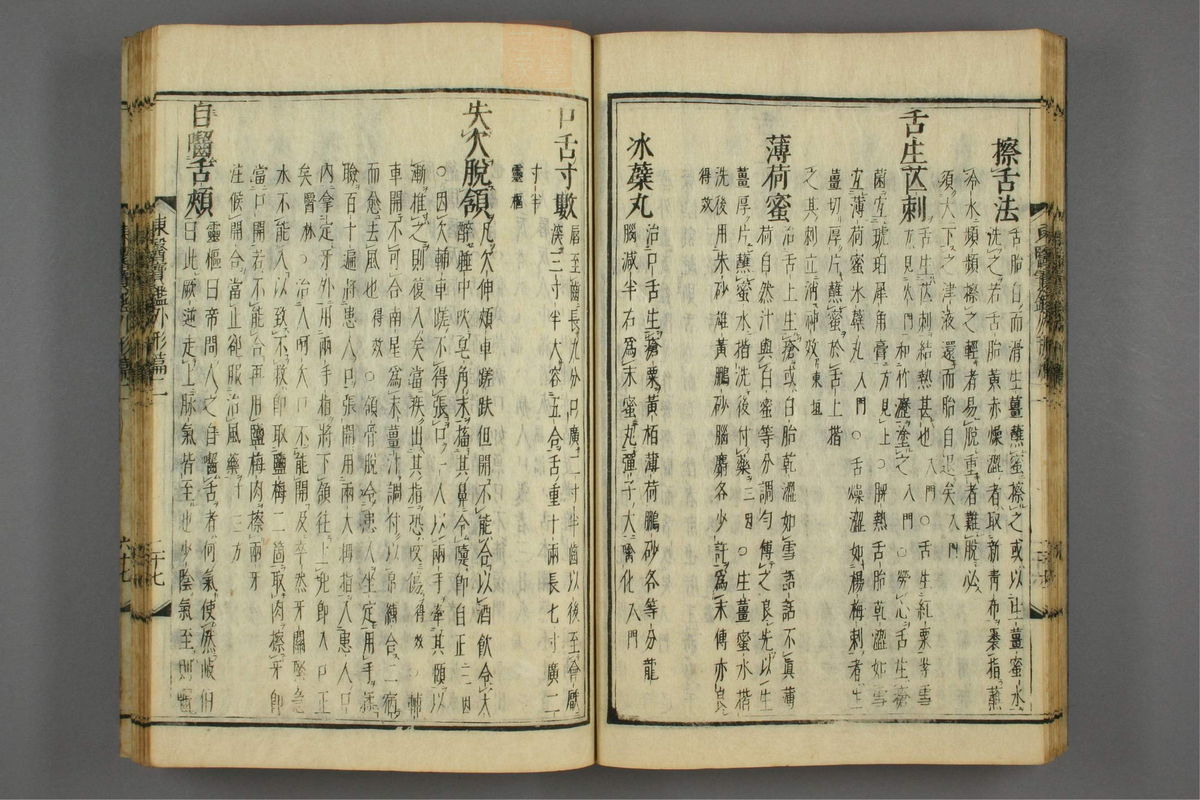 擦舌法
舌胎白而滑生薑蘸蜜擦之或以生薑蜜水
洗之若舌胎黃赤燥澁者取新青布裹指蘸
冷水頻頻擦之輕者易脫重者難脫必
須大下之津液還而胎自退矣入門
舌生芒刺
舌生芒刺結熱甚也入門○舌生紅粟
方見火門和竹瀝塗之入門○勞心舌生瘡
菌宜琥珀犀角膏方見上○脾熱舌胎乾澁如雪
宜薄荷蜜氷蘗丸入門○舌燥澁如楊梅刺者生
薑切厚片蘸蜜於舌上揩
之其刺立消神效東垣
薄荷蜜
治舌上生瘡或白胎乾澁如雪語話不眞薄
荷自然汁與白蜜等分調勻傅之良先以生
薑厚片蘸蜜水揩洗後付藥三因○生薑蜜水揩
洗後用朱砂雄黃鵬砂腦麝各少許爲末傅亦良
得效
冰蘗丸
治口舌生瘡粟黃栢薄荷鵬砂各等分龍
腦減半右爲末蜜丸彈子大噙化入門
口舌寸數
唇至齒長九分口廣二寸半齒以後至會厭
深三寸半大容五合舌重十兩長七寸廣二
寸半
靈樞
失欠脫頷
凡欠伸頰車蹉跌但開不能合以酒飮令大
醉睡中吹皂角末搐其鼻令嚏卽自正三因
○因欠輔車蹉不得張口一人以兩手牽其頤以
漸推之則復入矣當疾出其指恐咬傷得效○輔
車開不可合南星爲末薑汁調付以帛縛合二宿
而愈去風也得效○頷骨脫令患人坐定用手揉
臉百十遍將患人口張開用兩大拇指入患人口
內拿定牙外用兩手指將下頷往上兜卽入口正
矣醫林○治人呵欠口不能開及卒然牙關緊急
水不能入以致不救卽取鹽梅二箇取肉擦牙卽
當口開若不能合再用鹽梅肉擦兩牙
注候開合當止却服治風藥十三方
自嚙舌頰
靈樞曰帝問人之自嚙舌者何氣使然岐伯
曰此厥逆走上脉氣皆至也少陰氣至則嚙
東醫寶鑑外形篇二
二十七
六十七